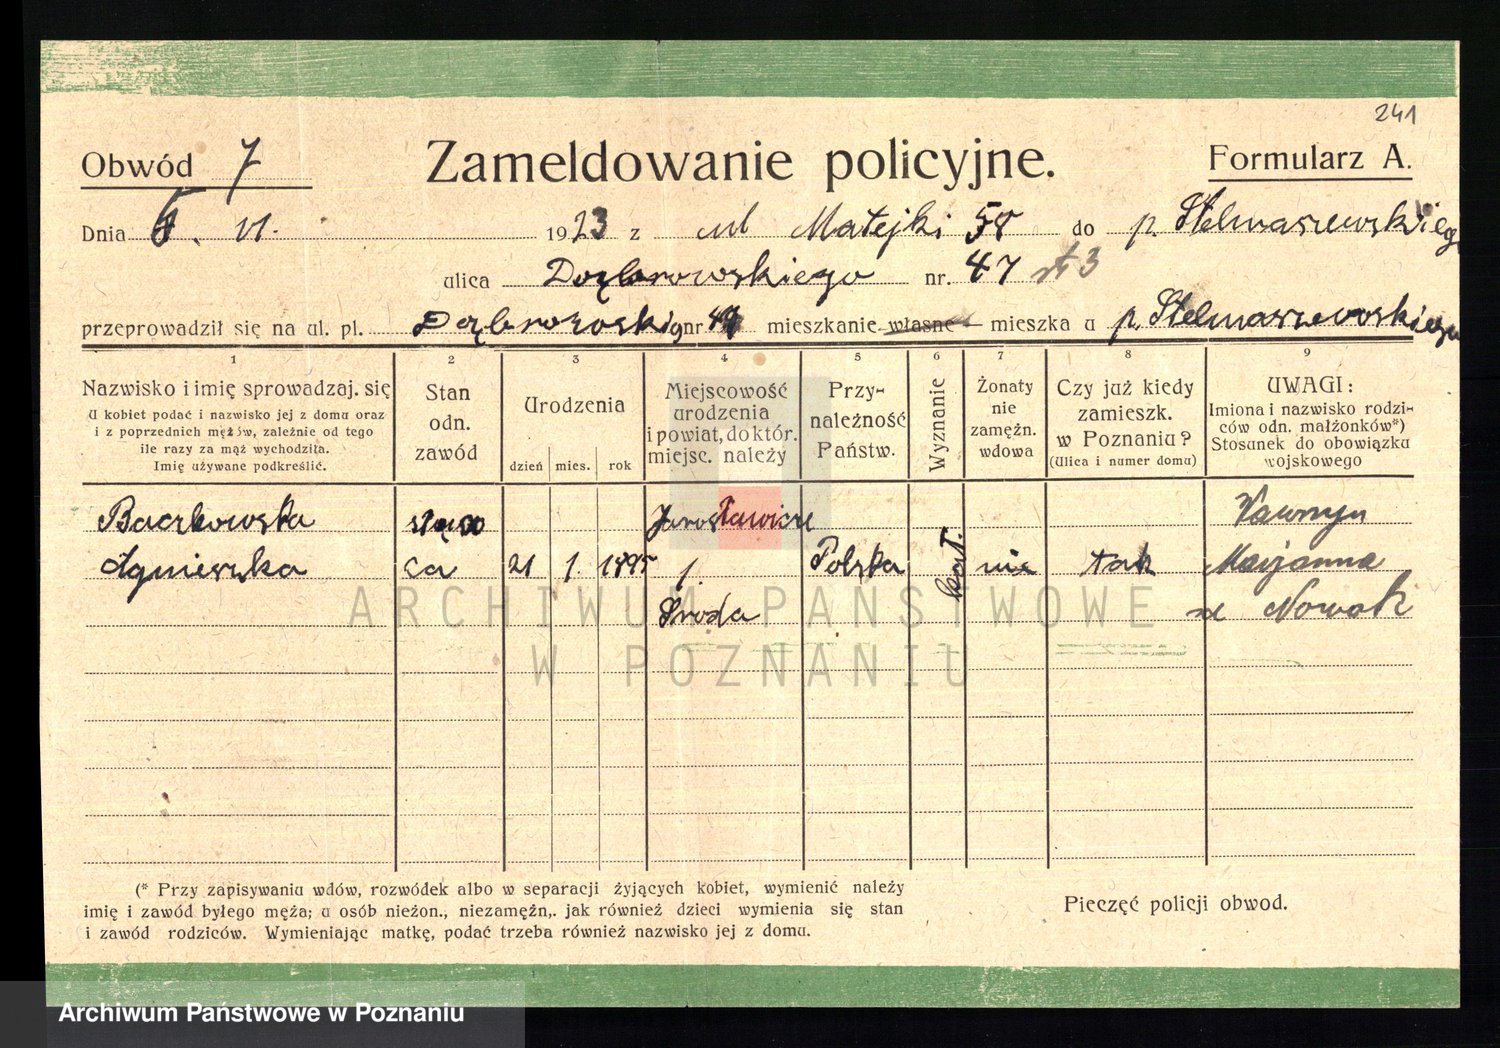 241
Obwód 7 Zameldowanie policyjne. Formularz A.
Dnia 6. VI. 1923 z ul Matejki 58 do p. Stelmaszewskiego
ulica Dąbrowskiego nr. 47 st 3
przeprowadził się na ul. pl. Dąbrowskig nr. 47 mieszkanie własne mieszka u p. Stelmaszewskiego
1 2 3 4 5 6 7 8 9
Nazwisko i imię sprowadzaj. się
U kobiet podać i nazwisko jej z domu oraz
i z poprzednich mężów, zależnie od tego
ile razy za mąż wychodziła.
Imię używane podkreślić.
Stan
odn.
zawód
Urodzenia
dzień mies. rok
Miejscowość
urodzenia
i powiat, do któr.
miejsc. należy
Przy-
należność
Państw.
Wyznanie
Żonaty
nie
zamężn.
wdowa
Czy już kiedy
zamieszk.
w Poznaniu?
(Ulica i numer domu)
UWAGI:
Imiona i nazwisko rodzi-
ców odn. małżonków*)
Stosunek do obowiązku
wojskowego
Baczkowska Jarosławice Wawrzyn
Agnieszka ca 21 1. 1895 p. Polska kat. nie tak Maryanna
Środa Nowak
ARCHIWUM PAŃSTWOWE
W POZNANIU
(* Przy zapisywaniu wdów, rozwódek albo w separacji żyjących kobiet, wymienić należy
imię i zawód byłego męża; u osób nieżon., niezamężn,. jak również dzieci wymienia się stan
i zawód rodziców. Wymieniając matkę, podać trzeba również nazwisko jej z domu.
Pieczęć policji obwod.
Archiwum Państwowe w Poznaniu